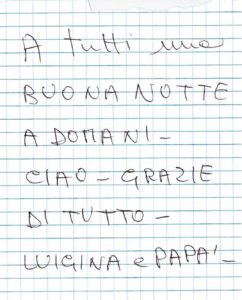 A tutti una
BUONA NOTTE
A DOMANI -
CIAO - GRAZIE
DI TUTTO -
LUIGINA e PAPA' -